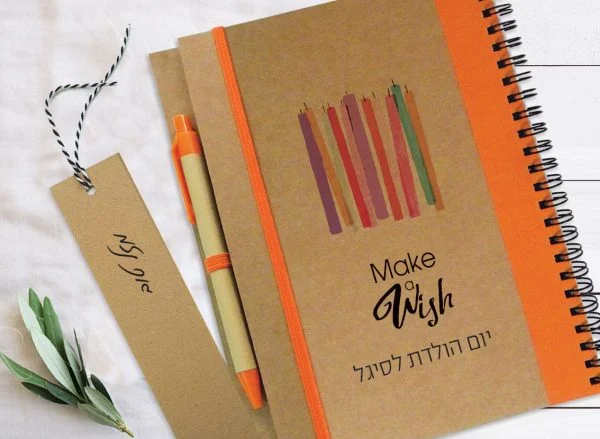 Make
a
Wish
יום הולדת לסיגל